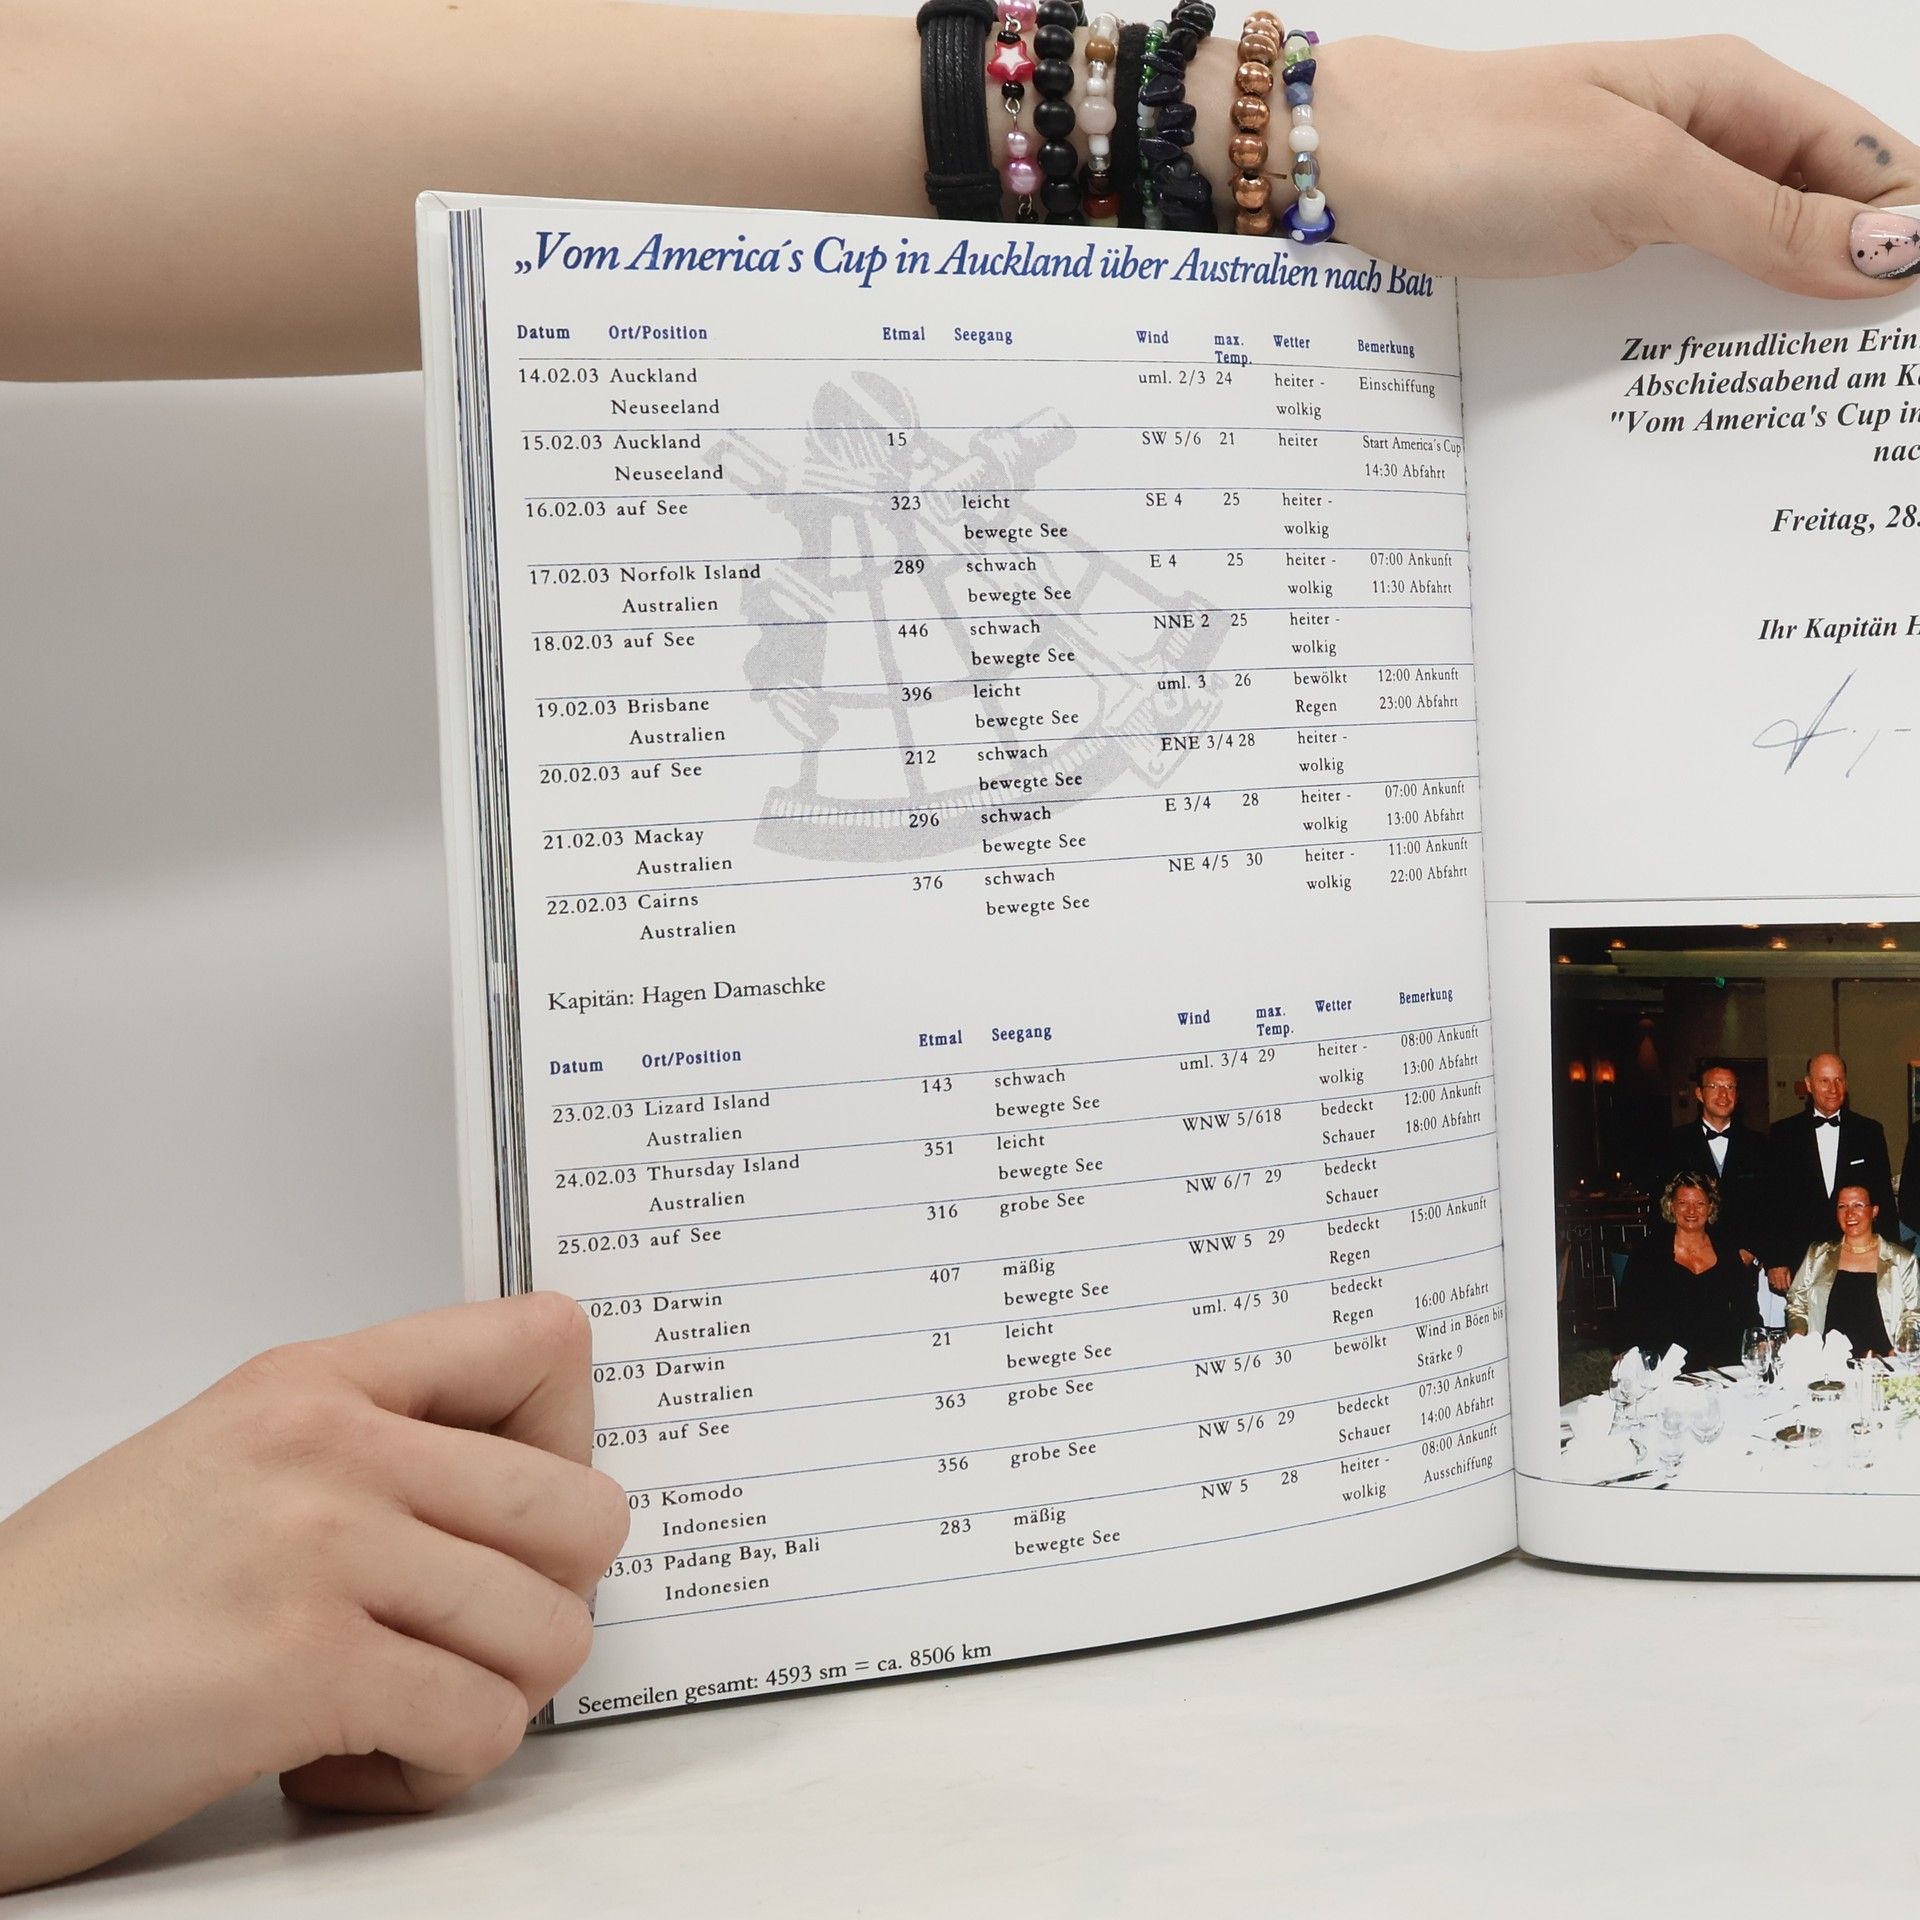 „Vom America´s Cup in Auckland über Australien nach Bali"
Datum Ort/Position Etmal Seegang Wind max. Temp. Wetter Bemerkung
14.02.03 Auckland uml. 2/3 24 heiter - Einschiffung
Neuseeland wolkig
15.02.03 Auckland 15 SW 5/6 21 heiter Start America´s Cup
Neuseeland 14:30 Abfahrt
16.02.03 auf See 323 leicht SE 4 25 heiter -
bewegte See wolkig
17.02.03 Norfolk Island 289 schwach E 4 25 heiter - 07:00 Ankunft
Australien bewegte See wolkig 11:30 Abfahrt
18.02.03 auf See 446 schwach NNE 2 25 heiter -
bewegte See wolkig
19.02.03 Brisbane 396 leicht uml. 3 26 bewölkt 12:00 Ankunft
Australien bewegte See Regen 23:00 Abfahrt
20.02.03 auf See 212 schwach ENE 3/4 28 heiter -
bewegte See wolkig
21.02.03 Mackay 296 schwach E 3/4 28 heiter - 07:00 Ankunft
Australien bewegte See wolkig 13:00 Abfahrt
22.02.03 Cairns 376 schwach NE 4/5 30 heiter - 11:00 Ankunft
Australien bewegte See wolkig 22:00 Abfahrt
Kapitän: Hagen Damaschke
Datum Ort/Position Etmal Seegang Wind max. Temp. Wetter Bemerkung
23.02.03 Lizard Island 143 schwach uml. 3/4 29 heiter - 08:00 Ankunft
Australien bewegte See wolkig 13:00 Abfahrt
24.02.03 Thursday Island 351 leicht WNW 5/618 bedeckt 12:00 Ankunft
Australien bewegte See Schauer 18:00 Abfahrt
25.02.03 auf See 316 grobe See NW 6/7 29 bedeckt
Schauer
.02.03 Darwin 407 mäßig WNW 5 29 bedeckt 15:00 Ankunft
Australien bewegte See Regen
02.03 Darwin 21 leicht uml. 4/5 30 bedeckt
Australien bewegte See Regen 16:00 Abfahrt
.02.03 auf See 363 grobe See NW 5/6 30 bewölkt Wind in Böen bis
Stärke 9
03 Komodo 356 grobe See NW 5/6 29 bedeckt 07:30 Ankunft
Indonesien Schauer 14:00 Abfahrt
03.03 Padang Bay, Bali 283 mäßig NW 5 28 heiter - 08:00 Ankunft
Indonesien bewegte See wolkig Ausschiffung
Seemeilen gesamt: 4593 sm = ca. 8506 km
Zur freundlichen Erin
Abschiedsabend am K
"Vom America's Cup in
nac
Freitag, 28.
Ihr Kapitän H